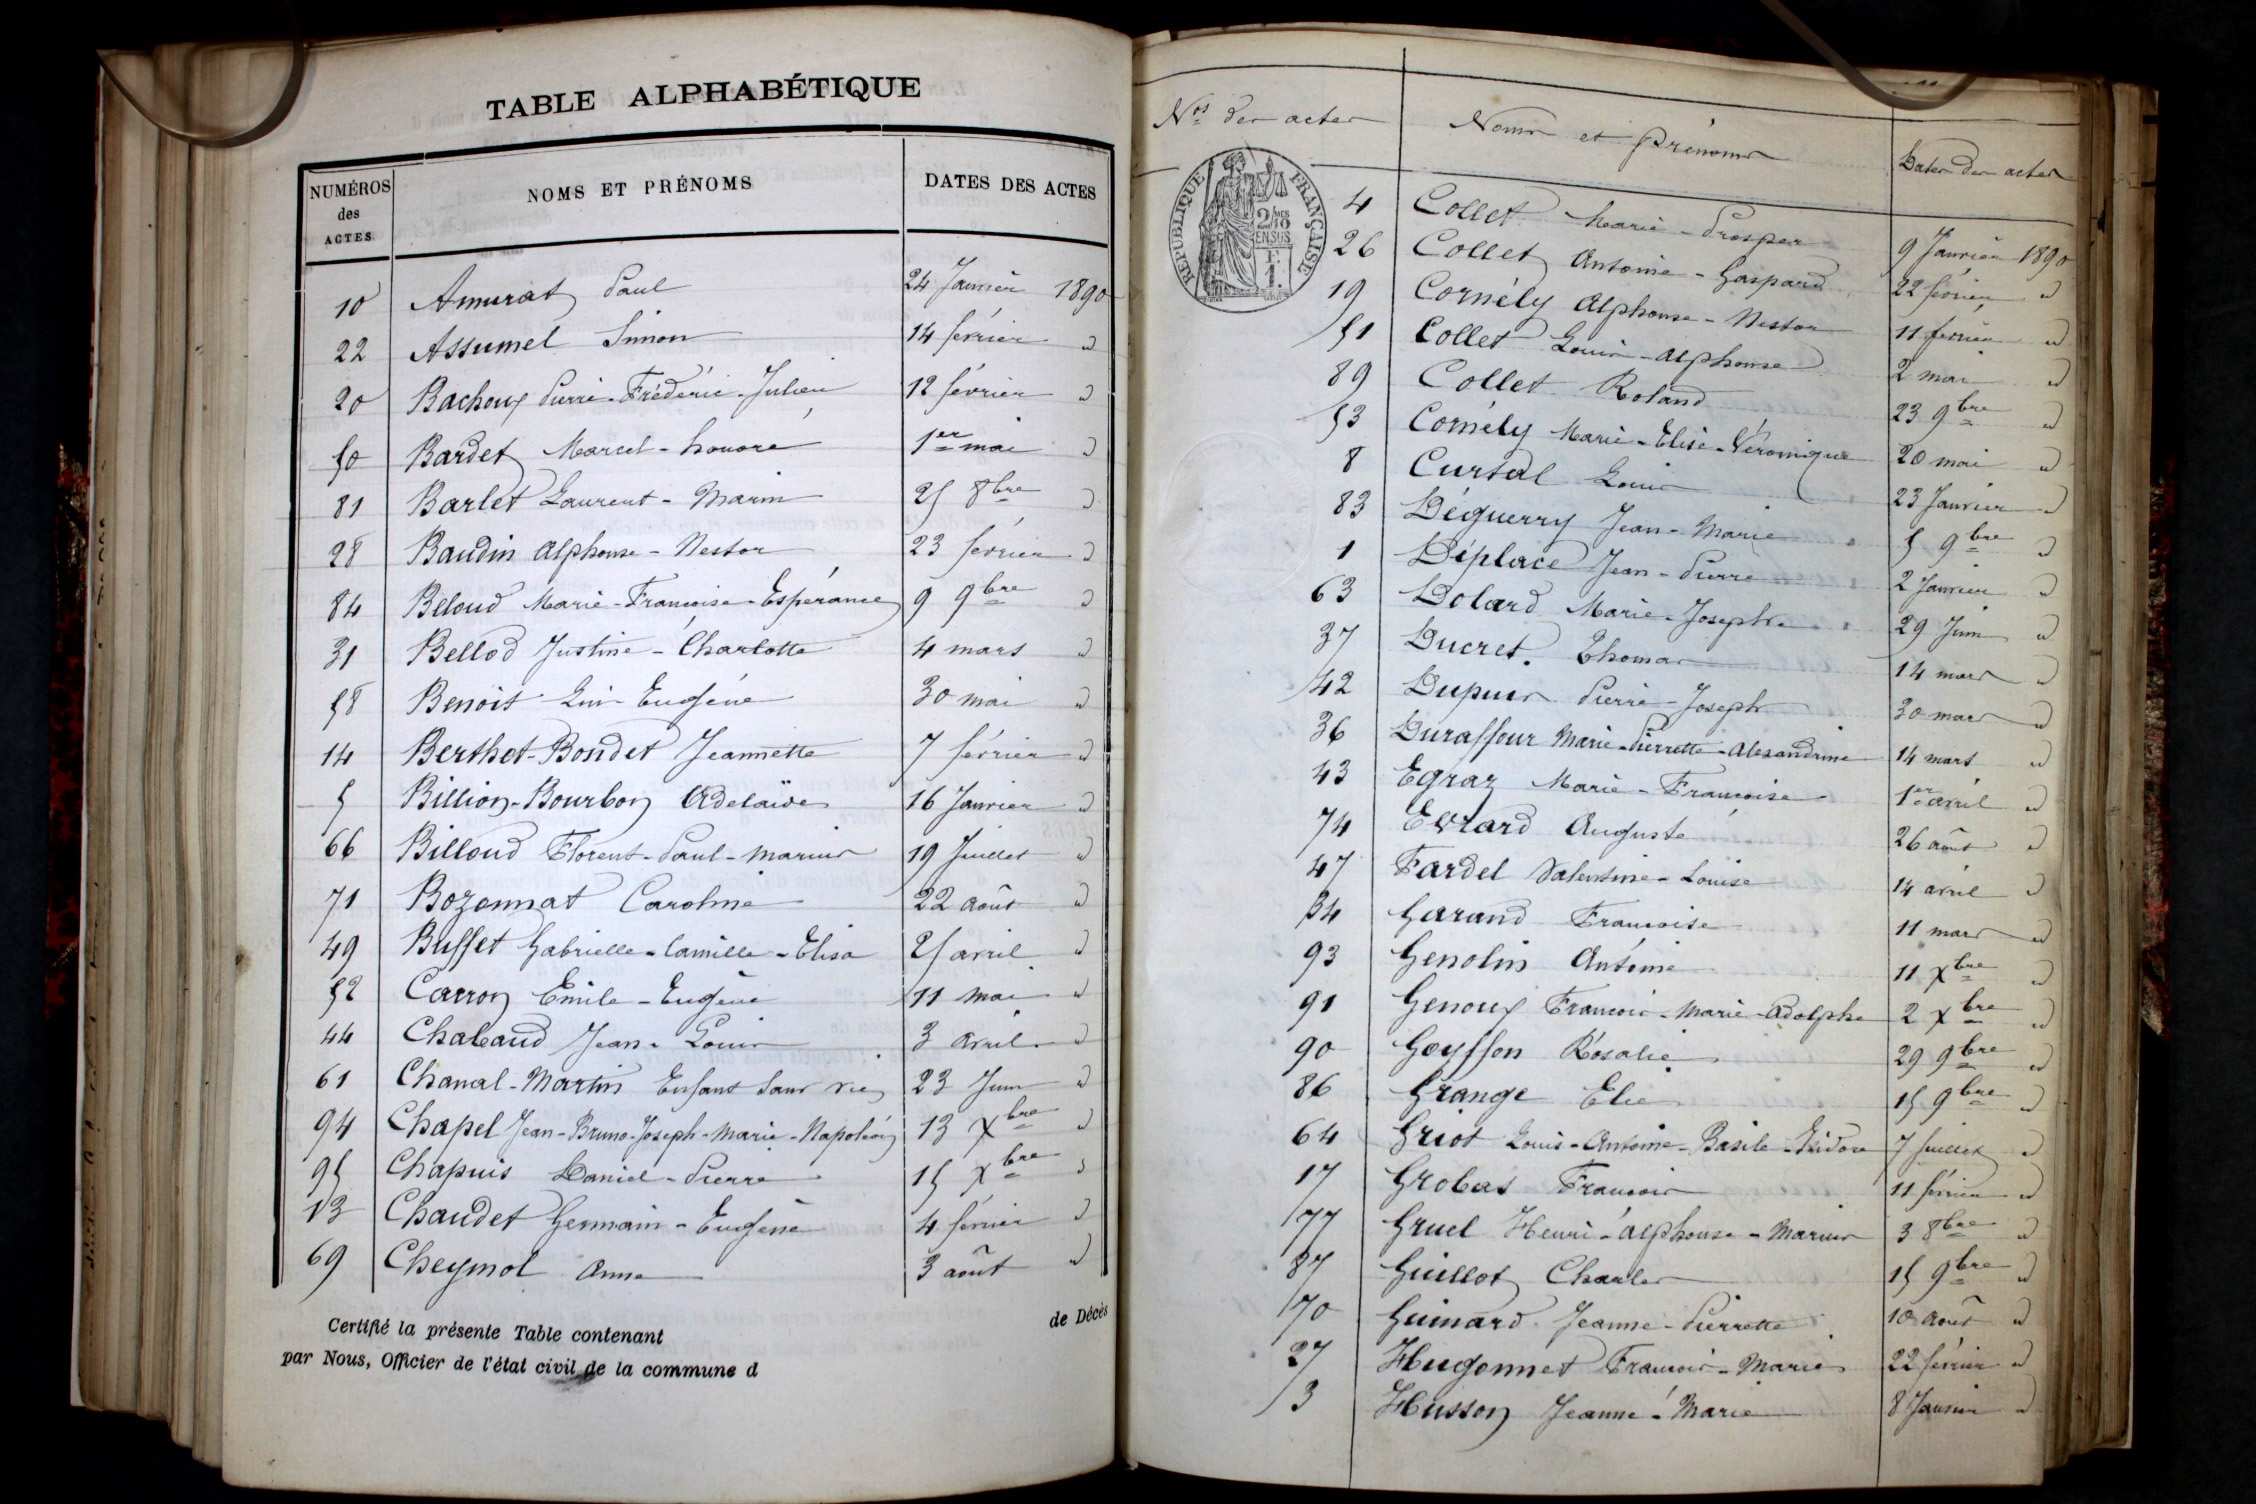 TABLE ALPHABÉTIQUE
NUMÉROS des ACTES NOMS ET PRÉNOMS DATES DES ACTES
10 Amurat Paul 24 Janvier 1890
22 Assumel Simon 14 février "
20 Bachoux Pierre-Frédéric-Julien 12 février "
50 Bardet Marcel-honoré 1er mai "
81 Barlet Laurent-Marin 25 8bre "
28 Baudin Alphonse-Nestor 23 février "
84 Béloud Marie-Françoise-Espérance 9 9bre "
31 Bellod Justine-Charlotte 4 mars "
58 Benoit Luis Eugène 30 mai "
14 Berthet-Bondet Jeannette 7 février "
5 Billion-Bourbon Adelaïde 16 Janvier "
66 Billoud Florent-Paul-Marius 19 Juillet "
71 Bozonnat Caroline 22 août "
49 Buffet Gabrielle-Camille-Elisa 25 avril "
52 Carron Emile-Eugène 11 mai "
44 Chabaud Jean-Louis 3 avril "
61 Chanal-Martin Enfant sans vie 23 Juin "
94 Chapel Jean-Bruno-Joseph-Marie-Napoléon 13 Xbre "
95 Chapuis Daniel-Pierre 15 Xbre "
13 Chaudet Germain-Eugène 4 février "
69 Cheymol Anna 3 août "
Certifié la présente Table contenant de Décès
par Nous, Officier de l'état civil de la commune d
Nos des actes Noms et Prénoms Dates des actes
RÉPUBLIQUE FRANÇAISE
2/10 EN SUS
1 F.
4 Collet Marie-Prosper 9 Janvier 1890
26 Collet Antoine-Gaspard 22 février "
19 Cornély Alphonse-Nestor 11 février "
51 Collet Louis-Alphonse 2 mai "
89 Collet Roland 23 9bre "
53 Cornély Marie-Elise-Véronique 20 mai "
8 Curtal Louis 23 Janvier "
83 Déguerry Jean-Marie 5 9bre "
1 Déplace Jean-Pierre 2 Janvier "
63 Dolard Marie-Joseph 29 Juin "
37 Ducret Thomas 14 mars "
42 Dupuis Pierre-Joseph 30 mars "
36 Duraffour Marie-Pierrette-Alexandrine 14 mars "
43 Egraz Marie-Françoise 1er avril "
74 Evrard Auguste 26 août "
47 Fardel Valentine-Louise 14 avril "
34 Garand Françoise 11 mars "
93 Genolin Antoine 11 Xbre "
91 Genoux François-Marie-Adolphe 2 Xbre "
90 Goyffon Rosalie 29 9bre "
86 Grange Elie 15 9bre "
64 Griot Louis-Antoine-Basile-Isidore 7 Juillet "
17 Grobas François 11 février "
77 Gruel Henri-Alphonse-Marius 3 8bre "
87 Guillot Charles 15 9bre "
70 Guinard Jeanne-Pierrette 10 août "
27 Hugonnet François-Marie 22 février "
3 Husson Jeanne-Marie 8 Janvier "